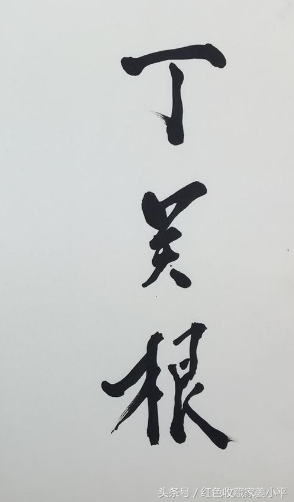 丁关根
头条号／红色收藏家姜小平